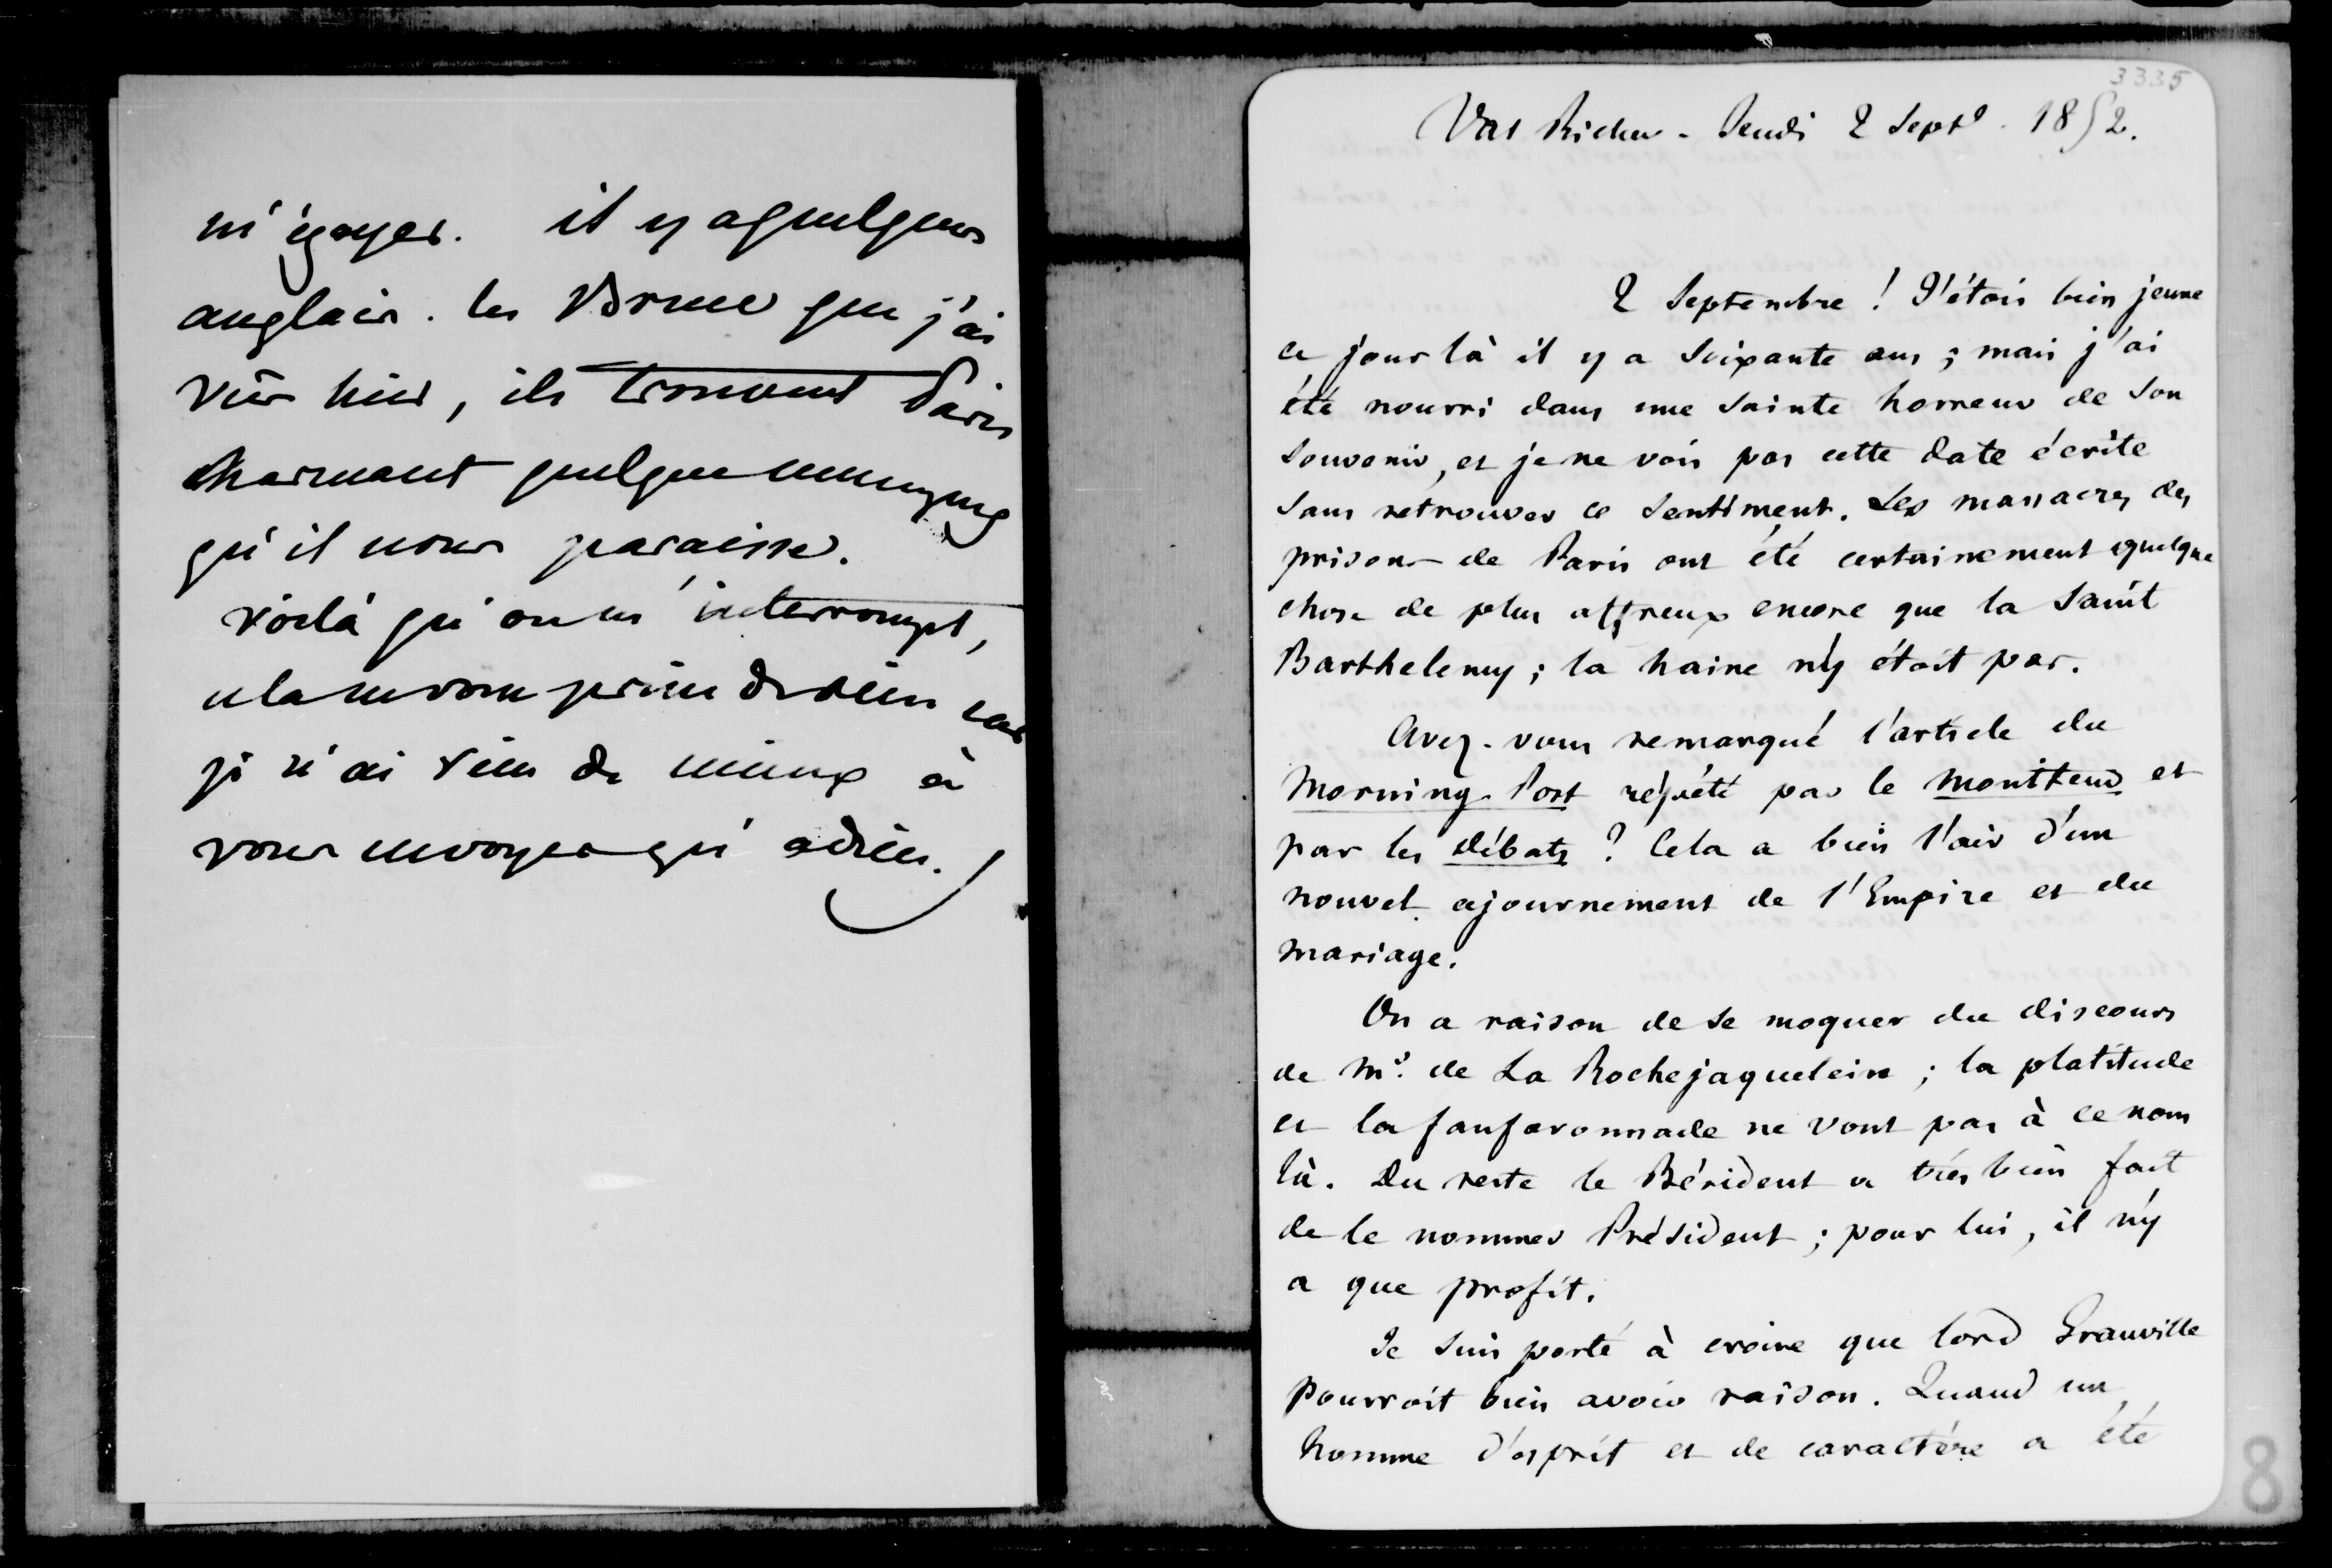 m'égayer. il y a quelques
anglais. les Bruce que j'ai
vus hier, ils trouvent Paris
charmant quelque ennuyeux
qu'il nous paraisse.
voilà qu'on m'interrompt,
cela ne vous prive de rien car
je n'ai rien de mieux à
vous envoyer qu'adieu.
3335
Val Richer - Jeudi 2 Septe. 1852.
2 Septembre ! J'étois bien jeune
ce jour là il y a soixante ans ; mais j'ai
été nourri dans une sainte horreur de son
souvenir, et je ne vois pas cette date écrite
sans retrouver ce sentiment. Les massacres des
prisons de Paris ont été certainement quelque
chose de plus affreux encore que la Saint
Barthelemy ; la haine n'y étoit pas.
Avez-vous remarqué l'article du
Morning-Post répété par le Moniteur et
par les Débats ? Cela a bien l'air d'un
nouvel ajournement de l'Empire et du
mariage.
On a raison de se moquer du discours
de Mr. de La Rochejaquelein ; la platitude
et la fanfaronnade ne vont pas à ce nom
là. Du reste le Président a très bien fait
de le nommer Président ; pour lui, il n'y
a que profit.
Je suis porté à croire que lord Granville
pourroit bien avoir raison. Quand un
homme d'esprit et de caractère a été
8